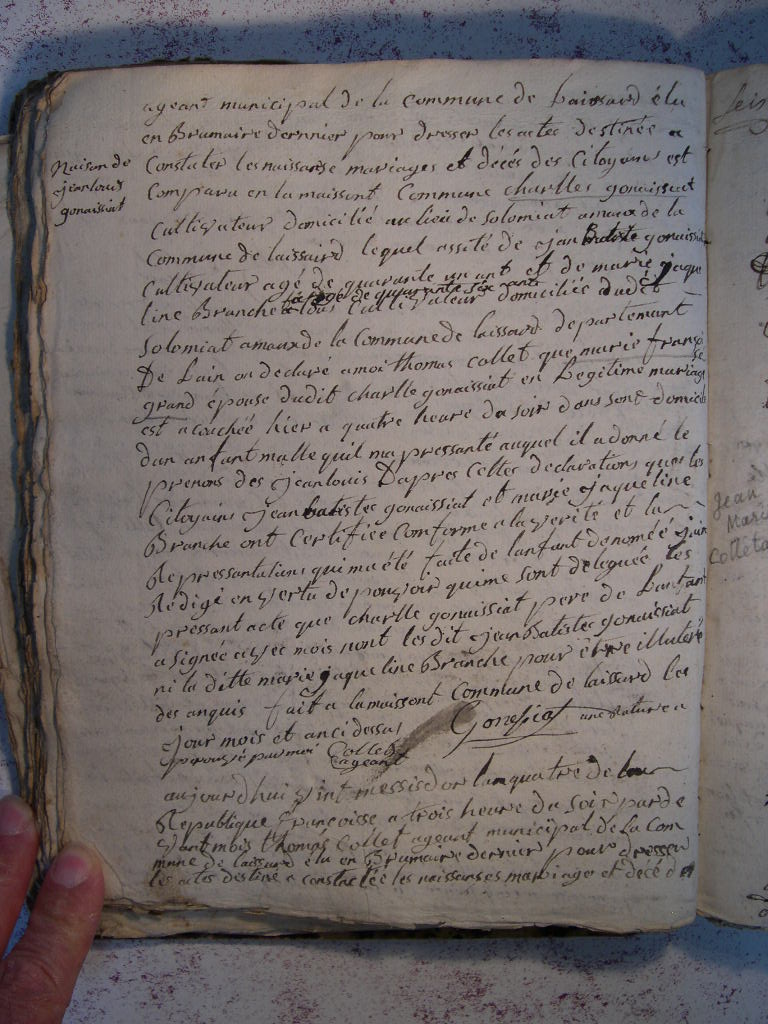 ageant municipal de la Commune de Laissard élu
en Brumaire dernnier pour dresser les actes destinée a
Naison de
jean louis
gonaissiat
Constater les naissance mariages et décés des Citoyains est
Comparu en la maissont Commune charlles gonaissiat
Cultivateur domicilié au lieu de Solomiat amaux de la
Commune de laissaird lequel assité de jean batiste gonaissiat
Cultivateur agé de quarante un ant et de marie jaque
line Branche
agé de quarante six ants
tous Cultivateur domiciliée dudit
Solomiat amaux de la Commune de laissard departemant
De Lain on declaré a moi thomas Collet que marie franse
grand épouse dudit charlle gonaissiat en Legitime mariage
est acouchée hier a quatre heure du soir dans sont domicil
dun anfant malle quil ma pressanté auquel il a donné le
prenons des jean louis Dapres Cettes declarations que les
Citoyains jean batistes gonaissiat et marie jaqueline
Branche ont Certifiée Conforme a la verité et la
Repressantations qui ma été faite de lanfant denomée jai
Rédigé en vertu de pouvoir qui me sont deleguée les
pressant acte que charlle gonaissiat pere de Lanfant
a signée avec mois nont les dit jean Batistes gonaissiat
ni la ditte marie jaqueline Branche pour être illuteré
des anquis fait a la maissont Commune de laissard les
jour mois et anci dessus
Gonessiat
par moi Collet
ageant
aujourdhui vint messisdor lan quatre de la
Republique francoisse a trois heure du Soir par de
vant mois thomas Collet ageant municipal de la Com
mune de laissard élu en Brumaire dernier pour dresser
les actes destiné a constactée les naissanses mariages et décé d
Jean
Marie
Colleta